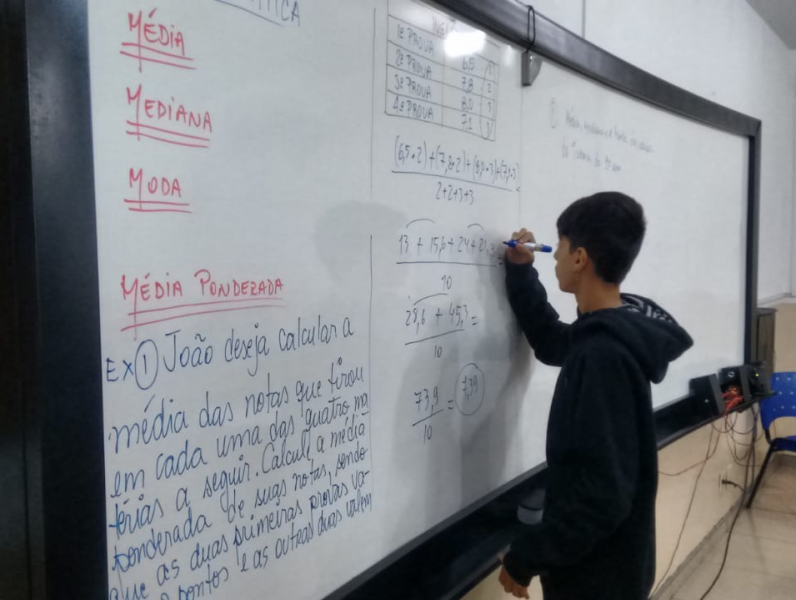 MÉDIA
MEDIANA
MODA
MÉDIA PONDERADA
EX ① João deseja calcular a
média das notas que tirou
em cada uma das quatro ma
térias a seguir. Calcule a média
ponderada de suas notas, sendo
que as duas primeiras provas va-
pontos e as outras duas valem
1ª PROVA 6,5 2
2ª PROVA 7,8 2
3ª PROVA 8,0 3
4ª PROVA 7,1 3
(6,5·2)+(7,8·2)+(8,0·3)+(7,1·3)
2+2+3+3
13 + 15,6 + 24 + 21,3 =
10
28,6 + 45,3 =
10
73,9 = 7,39
10